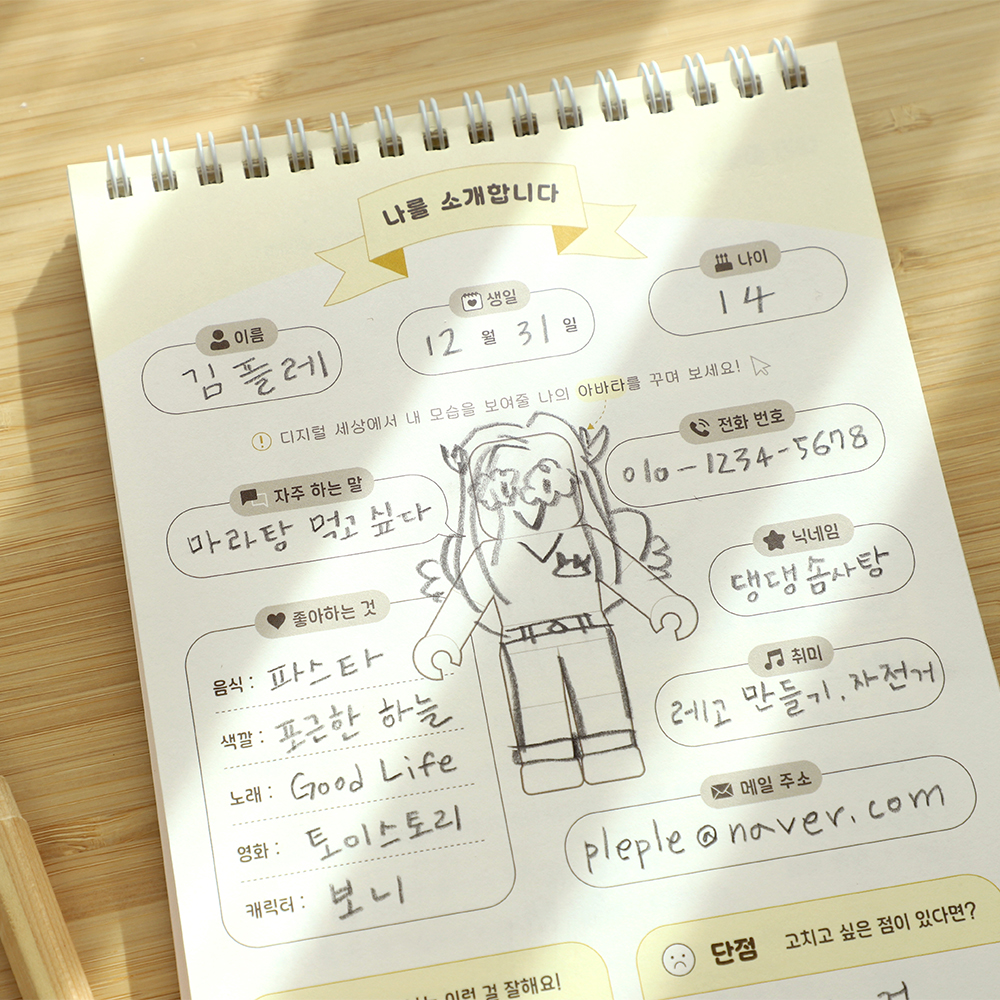 나를 소개합니다
이름
김플레
생일
12 월 31 일
나이
14
디지털 세상에서 내 모습을 보여줄 나의 아바타를 꾸며 보세요!
자주 하는 말
마라탕 먹고 싶다
전화 번호
010-1234-5678
닉네임
댕댕솜사탕
좋아하는 것
음식 : 파스타
색깔 : 포근한 하늘
노래 : Good Life
영화 : 토이스토리
캐릭터 : 보니
취미
레고 만들기, 자전거
메일 주소
pleple@naver.com
이런 걸 잘해요!
단점 고치고 싶은 점이 있다면?